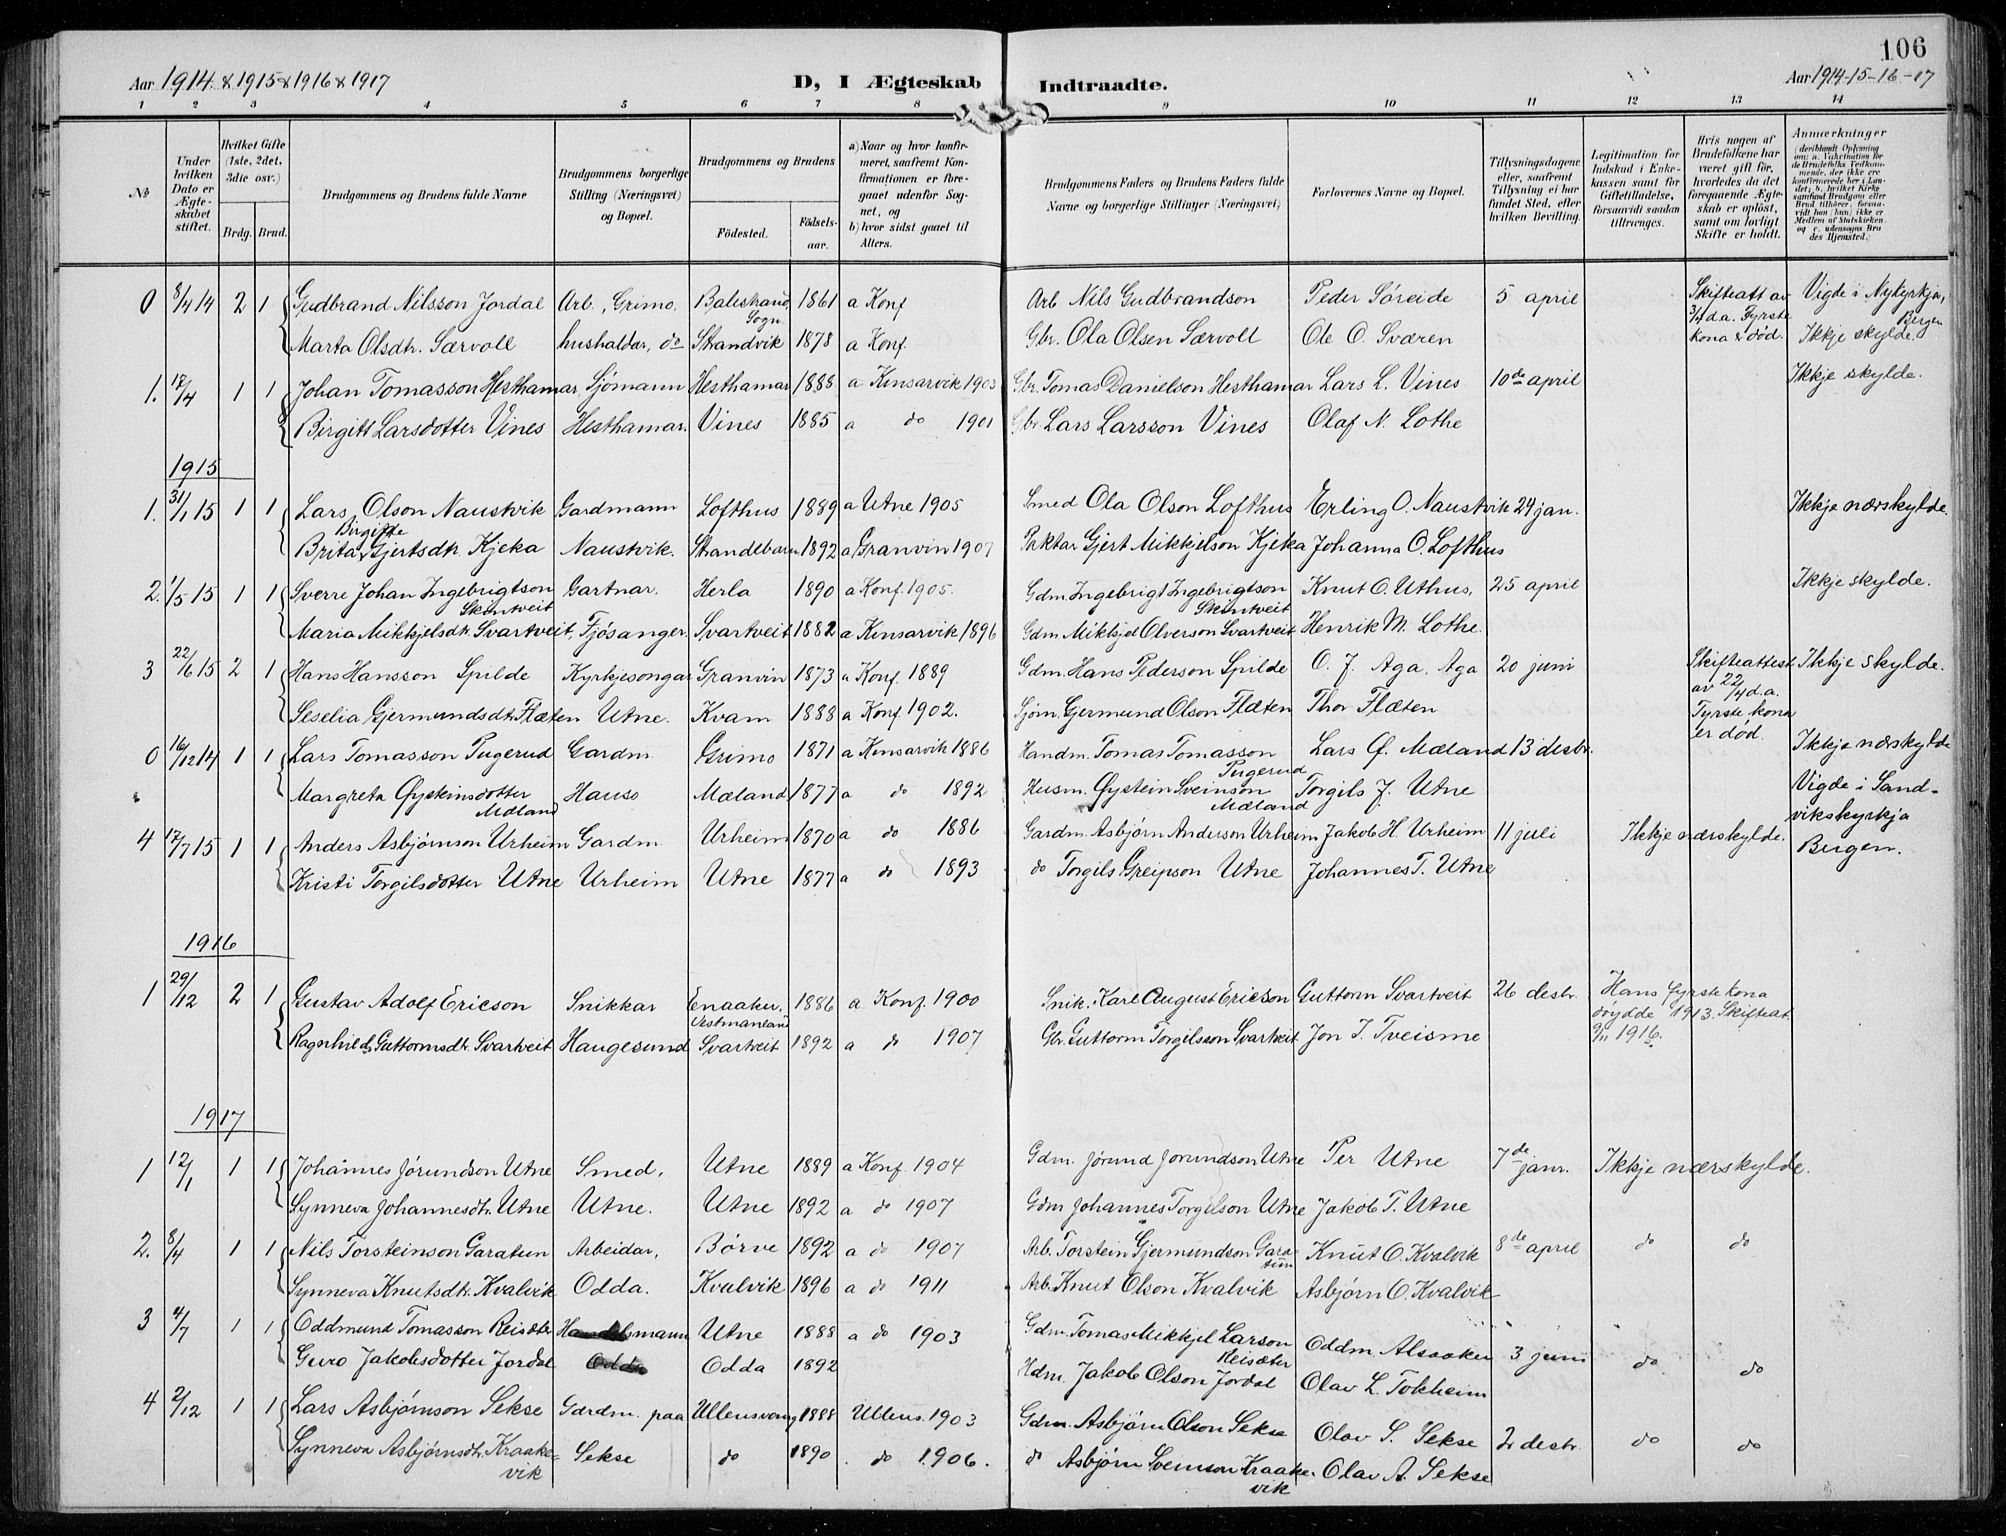 106
Aar 1914 & 1915 & 1916 & 1917 D, I Ægteskab Indtraadte. Aar 1914-15-16-17
1 2 3 4 5 6 7 8 9 10 11 12 13 14
No
Under hvilken Dato er Ægteskabet stiftet.
Hvilket Gifte (1ste, 2det, 3die osv.)
Brdg. Brud.
Brudgommens og Brudens fulde Navne
Brudgommens borgerlige Stilling (Næringsvei) og Bopæl.
Brudgommens og Brudens
Fødested. Fødselsaar.
a) Naar og hvor konfirmeret, saafremt Konfirmationen er foregaaet udenfor Sognet, og
b) hvor sidst gaaet til Alters.
Brudgommens Faders og Brudens Faders fulde Navne og borgerlige Stillinger (Næringsvei)
Forlovernes Navne og Bopæl.
Tillysningsdagene eller, saafremt Tillysning ei har fundet Sted, efter hvilken Bevilling.
Legitimation for Indskud i Enkekassen samt for Giftetilladelse, forsaavidt saadan tiltrænges.
Hvis nogen af Brudefolkene har været gift før, hvorledes da det foregaaende Ægteskab er opløst, samt om lovligt Skifte er holdt.
Anmærkninger (deriblandt Oplysning om: a. Vakcination for de Brudefolks Vedkommende, der ikke ere konfirmerede her i Landet; b. hvilket Kirkesamfund Brudgom eller Brud tilhører, forsaavidt han (hun) ikke er Medlem af Statskirken. og c. udensogns Brudes Hjemsted.)
0 8/4 14 2 1 Gudbrand Nilsson Jordal Arb., Grimo. Balestrand, Sogn. 1861 a Konf Arb Nils Gudbrandson Peder Søreide 5 april Skifteatt av 3/4 d.a. Fyrste kona er død. Vigde i Nykyrkja, Bergen
Marta Olsdtr. Særvoll hushaldar, do Strandvik 1878 a Konf. Gbr. Ola Olsen Særvoll Ole O. Sværen Ikkje skylde.
1. 17/4 1 1 Johan Tomasson Hesthamar Sjømann Hesthamar 1888 a Kinsarvik 1903 Gbr. Tomas Danielson Hesthamar Lars L. Vines 10de april Ikkje skylde.
Birgitt Larsdotter Vines Hesthamar. Vines 1885 a do 1901 Gbr Lars Larsson Vines Olaf N. Lothe
1915
1. 31/1 15 1 1 Lars Olson Naustvik Gardmann Lofthus 1889 a Utne 1905 Smed Ola Olson Lofthus Erling O. Naustvik 24 jan. Ikkje nærskylde.
Birgitte
Brita Gjertsdtr. Kjeka Naustvik. Strandebarm 1892 a Granvin 1907 Paktar Gjert Mikkjelson Kjeka Johanna O. Lofthus
2. 1/5 15 1 1 Sverre Johan Ingebrigtson Skintveit Gartnar. Herla 1890 a Konf. 1905. Gdm. Ingebrigt Ingebrigtson Skintveit Knut O. Uthus, 25 april Ikkje skylde.
Maria Mikkjelsdtr. Svartveit, Fjøsanger. Svartveit 1882 a Kinsarvik 1896 Gdm Mikkjel Olverson Svartveit Henrik M. Lothe.
3 22/6 15 2 1 Hans Hansson Spilde Kyrkjesongar Granvin 1873 a Konf. 1889 Gdm. Hans Pederson Spilde O. J. Aga, Aga 20 juni Skifteattest av 22/4 d.a. Fyrste kona er død. Ikkje skylde.
Seselia Gjermundsdt. Flæten Utne. Kvam 1888 a Konf 1902. Sjøm. Gjermund Olson Flæten Thor Flæten
0 16/12 14 1 1 Lars Tomasson Pugerud Gardm. Grimo 1871 a Kinsarvik 1886 Handm. Tomas Tomasson Pugerud Lars Q. Mæland 13 desbr. Ikkje nærskylde
Margreta Øysteinsdotter Mæland Hauso Mæland 1877 a do 1892 Husm. Øystein Sveinson Mæland Torgils J. Utne Vigde i Sandvikskyrkja Bergen.
4 17/7 15 1 1 Anders Asbjørnson Urheim Gardm. Urheim 1870 a do 1886 Gardm. Asbjørn Anderson Urheim Jakob H. Urheim 11 juli Ikkje nærskylde.
Kristi Torgilsdotter Utne Urheim Utne 1877 a do 1893 do Torgils Greipson Utne Johannes T. Utne
1916
1 29/12 2 1 Gustav Adolf Ericson Snikkar Enaaker, Vestmanland 1886 a Konf. 1900 Snik. Karl August Ericson Guttorm Svartveit 26 desbr. Hans fyrste kona døydde 1913. Skifteat 9/11 1916.
Ragnhild Guttormsdtr. Svartveit Haugesund Svartveit 1892 a do 1907 Gbr. Guttorm Torgilsson Svartveit Jon T. Tveisme
1917
1 12/1 1 1 Johannes Jørundson Utne Smed, Utne 1889 a Konf. 1904 Gdm. Jørund Jørundson Utne Per Utne 7de janr. Ikkje nærskylde.
Synneva Johannesdtr. Utne Utne. Utne 1892 a do 1907 Gdm Johannes Torgilson Utne Jakob T. Utne
2. 8/4 1 1 Nils Torsteinson Garatun Arbeidar, Børve 1892 a do 1907 Arb. Torstein Gjermundson Garatun Knut O. Kvalvik 8de april do do
Synneva Knutsdtr. Kvalvik Odda. Kvalvik 1896 a do 1911 Arb. Knut Olson Kvalvik Asbjørn O. Kvalvik
3 4/7 1 1 Oddmund Tomasson Reisæter Handelsmann Utne 1888 a do 1903 Gdm. Tomas Mikkjel Larson Reisæter Oddm. Alsaaker 3 juni do do
Guro Jakobsdotter Jordal Odda Odda 1892 Hdm. Jakob Olson Jordal Olav L. Tokheim
4 2/12 1 1 Lars Asbjørnson Sekse Gardm. paa Ullensvang 1888 Ullens. 1903 Gdm. Asbjørn Olson Sekse Olav S. Sekse 2 desbr. do do
Synneva Asbjørnsdtr. Kraakevik Sekse do 1890 do 1906. do Asbjørn Sveinson Kraakevik Olav A. Sekse